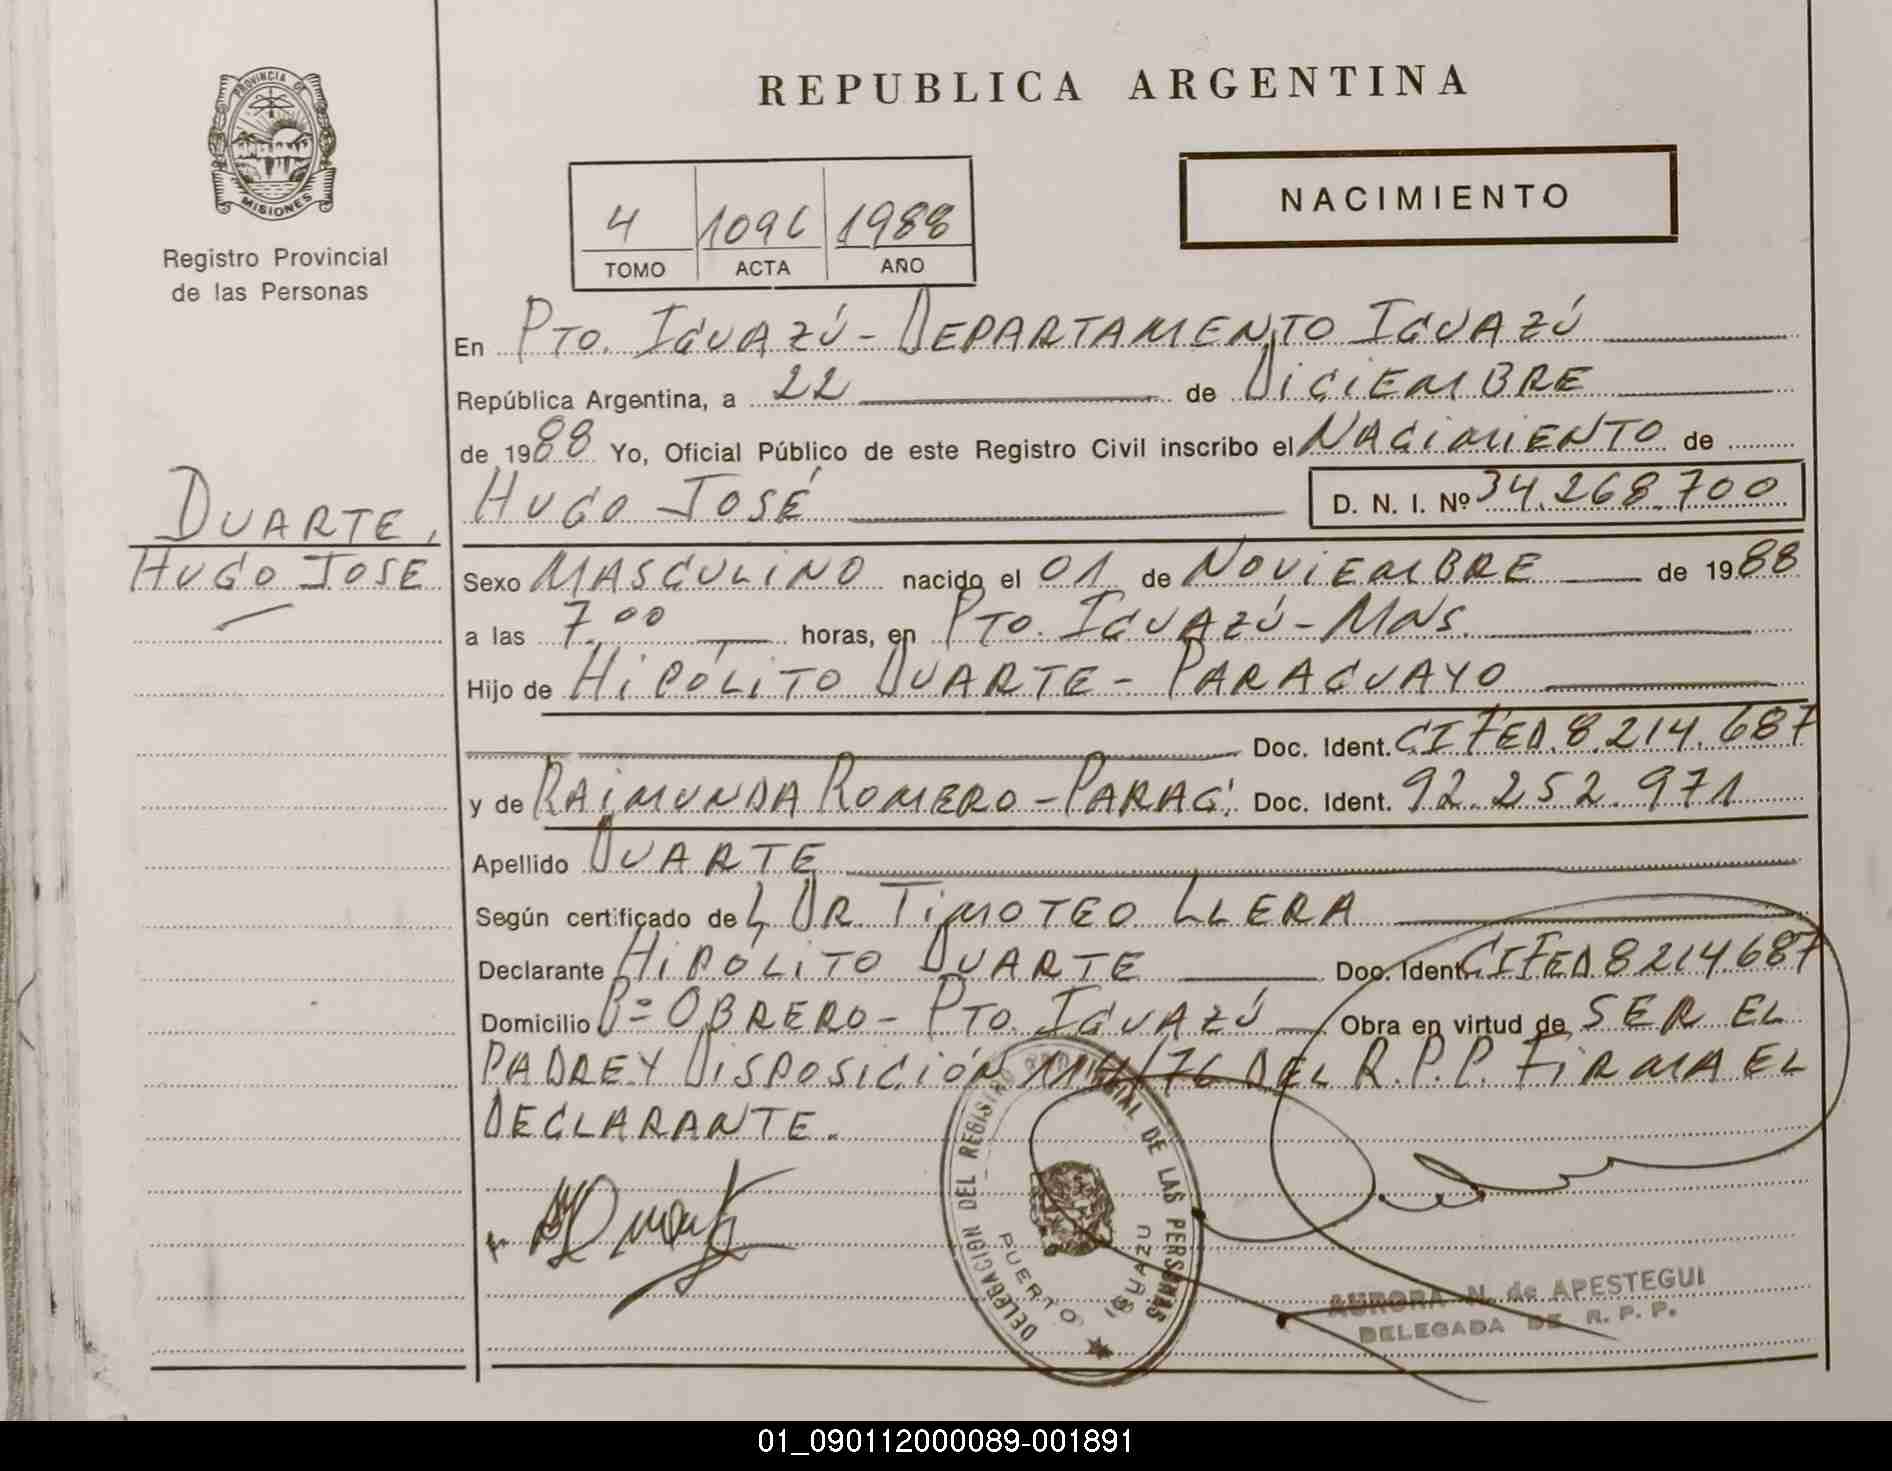 PROVINCIA DE
MISIONES
Registro Provincial
de las Personas
REPUBLICA ARGENTINA
NACIMIENTO
4 1096 1988
TOMO ACTA AÑO
En PTO. IGUAZÚ - DEPARTAMENTO IGUAZÚ
República Argentina, a 22 de DICIEMBRE
de 1988 Yo, Oficial Público de este Registro Civil inscribo el NACIMIENTO de
HUGO JOSÉ D. N. I. Nº 34.268.700
DUARTE,
HUGO JOSE
Sexo MASCULINO nacido el 01 de NOVIEMBRE de 1988
a las 7.00 horas, en PTO. IGUAZÚ - MNS.
Hijo de HIPÓLITO DUARTE - PARAGUAYO
Doc. Ident. CI FED. 8.214.687
y de RAIMUNDA ROMERO - PARAG. Doc. Ident. 92.252.971
Apellido DUARTE
Según certificado del DR. TIMOTEO LLERA
Declarante HIPÓLITO DUARTE Doc. Ident. CI FED 8214687
Domicilio Bº OBRERO - PTO. IGUAZÚ Obra en virtud de SER EL
PADRE Y DISPOSICIÓN /76 DEL R.P.P. FIRMA EL
DECLARANTE.
DELEGACION DEL REGISTRO PROVINCIAL DE LAS PERSONAS
PUERTO IGUAZU
AURORA N. de APESTEGUI
DELEGADA DE R. P. P.
01_090112000089-001891